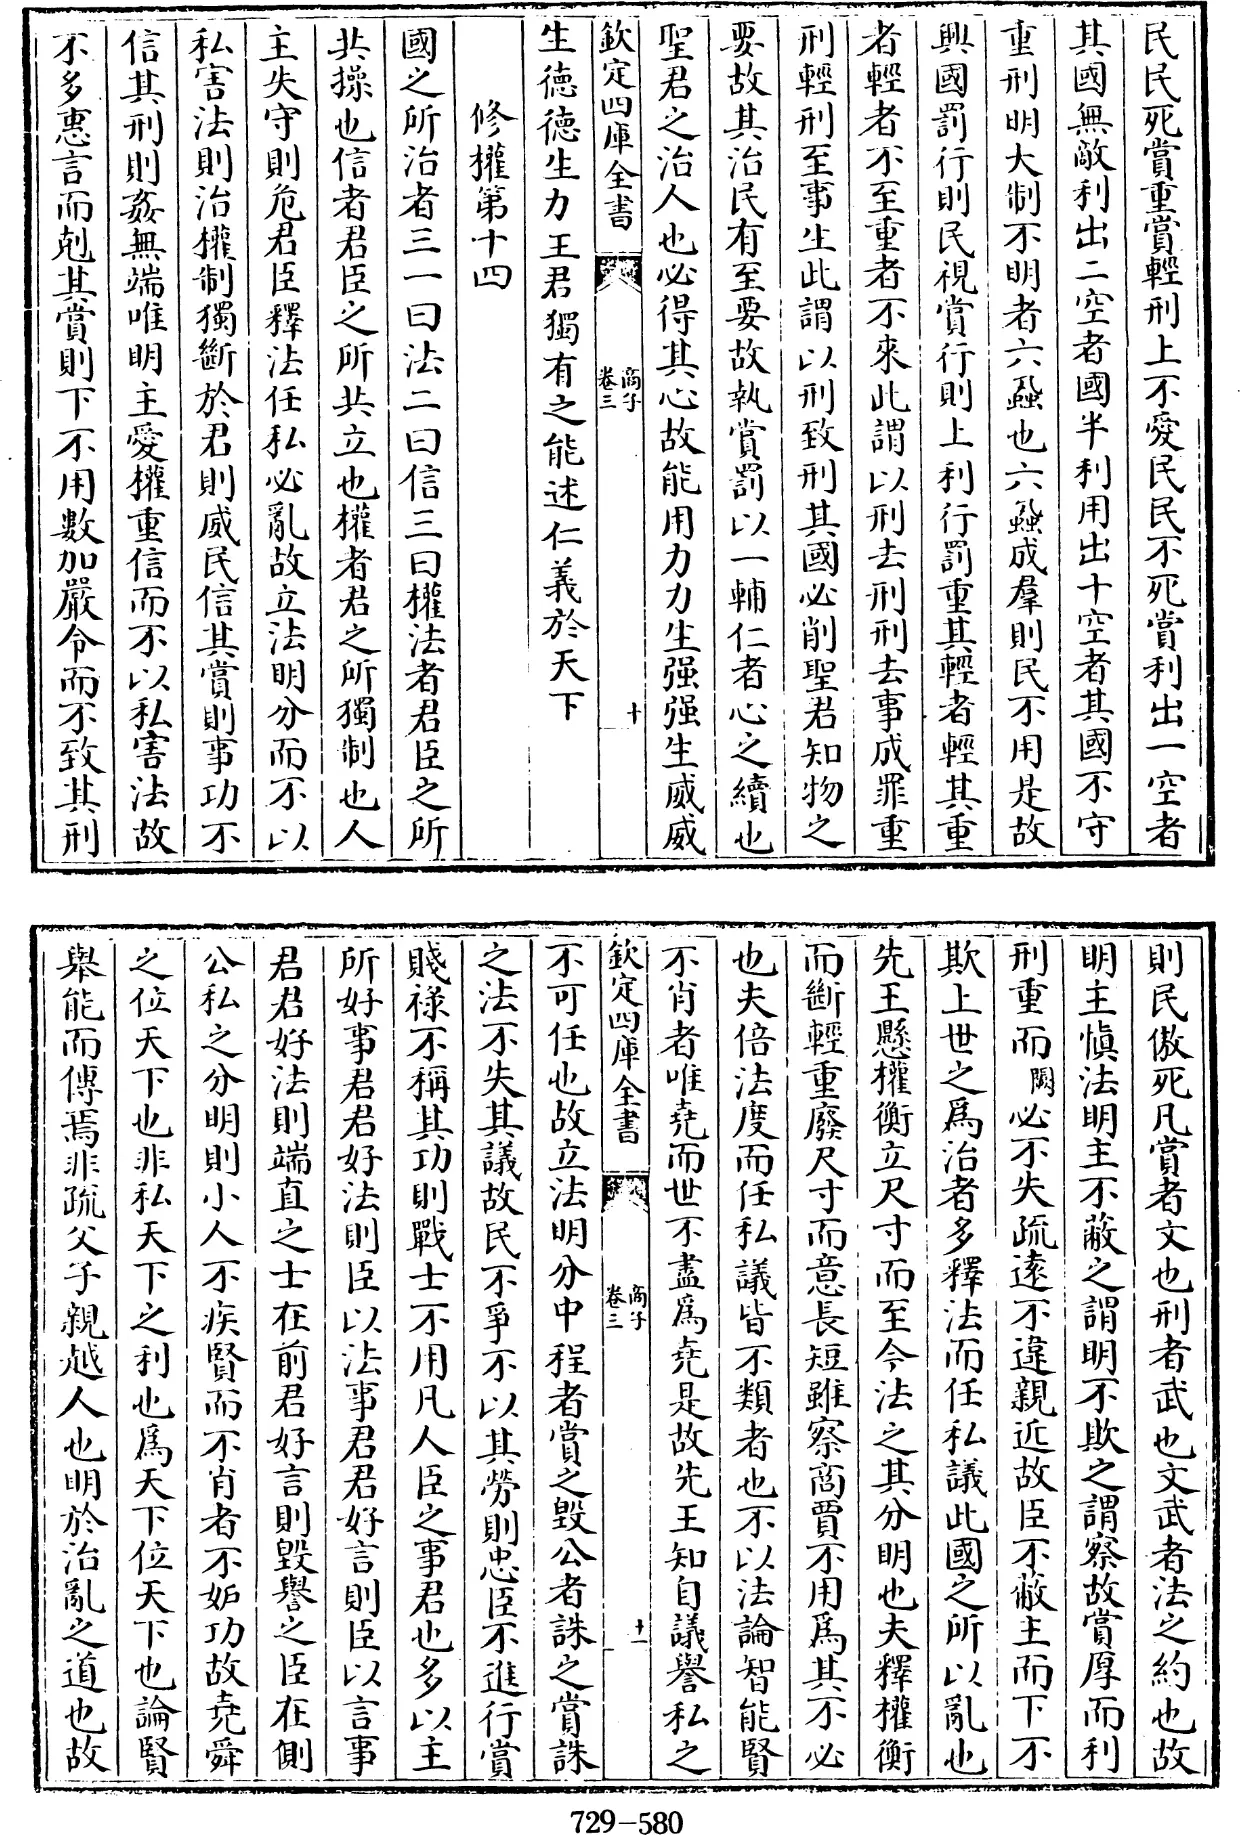 民民死賞重賞輕刑上不愛民民不死賞利出一空者
其國無敵利出二空者國半利用出十空者其國不守
重刑明大制不明者六蝨也六蝨成羣則民不用是故
興國罰行則民視賞行則上利行罰重其輕者輕其重
者輕者不至重者不來此謂以刑去刑刑去事成罪重
刑輕刑至事生此謂以刑致刑其國必削聖君知物之
要故其治民有至要故執賞罰以一輔仁者心之續也
聖君之治人也必得其心故能用力力生强强生威威
欽定四庫全書
商子
卷三
十
生德德生力王君獨有之能述仁義於天下
修權第十四
國之所治者三一曰法二曰信三曰權法者君臣之所
共操也信者君臣之所共立也權者君之所獨制也人
主失守則危君臣釋法任私必亂故立法明分而不以
私害法則治權制獨斷於君則威民信其賞則事功不
信其刑則姦無端唯明主愛權重信而不以私害法故
不多惠言而剋其賞則下不用數加嚴令而不致其刑
則民傲死凡賞者文也刑者武也文武者法之約也故
明主慎法明主不蔽之謂明不欺之謂察故賞厚而利
刑重而闕必不失疏遠不違親近故臣不蔽主而下不
欺上世之為治者多釋法而任私議此國之所以亂也
先王懸權衡立尺寸而至今法之其分明也夫釋權衡
而斷輕重廢尺寸而意長短雖察商賈不用為其不必
也夫倍法度而任私議皆不類者也不以法論智能賢
不肖者唯堯而世不盡為堯是故先王知自議譽私之
欽定四庫全書
商子
卷三
十一
不可任也故立法明分中程者賞之毀公者誅之賞誅
之法不失其議故民不爭不以其勞則忠臣不進行賞
賤祿不稱其功則戰士不用凡人臣之事君也多以主
所好事君君好法則臣以法事君君好言則臣以言事
君君好法則端直之士在前君好言則毀譽之臣在側
公私之分明則小人不疾賢而不肖者不妒功故堯舜
之位天下也非私天下之利也為天下位天下也論賢
舉能而傳焉非疏父子親越人也明於治亂之道也故
729-580